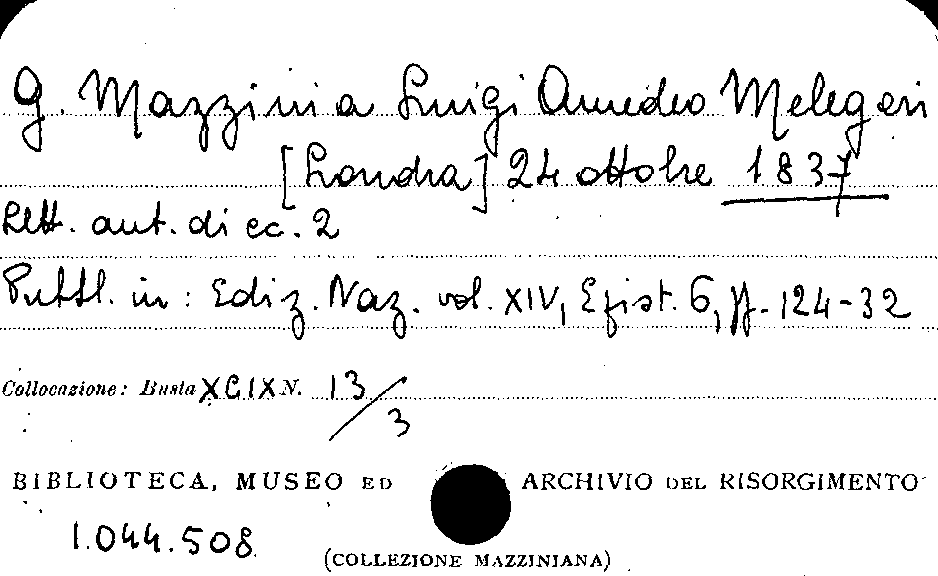 G. Mazzini a Luigi Amedeo Melegari
[Londra] 24 ottobre 1837
Lett. aut. di cc. 2
Pubbl. in: Ediz. Naz. vol. XIV, Epist. 6, pp. 124-32
Collocazione: Busta XCIX N. 13/3
BIBLIOTECA, MUSEO ED ARCHIVIO DEL RISORGIMENTO
1.044.508
(COLLEZIONE MAZZINIANA)